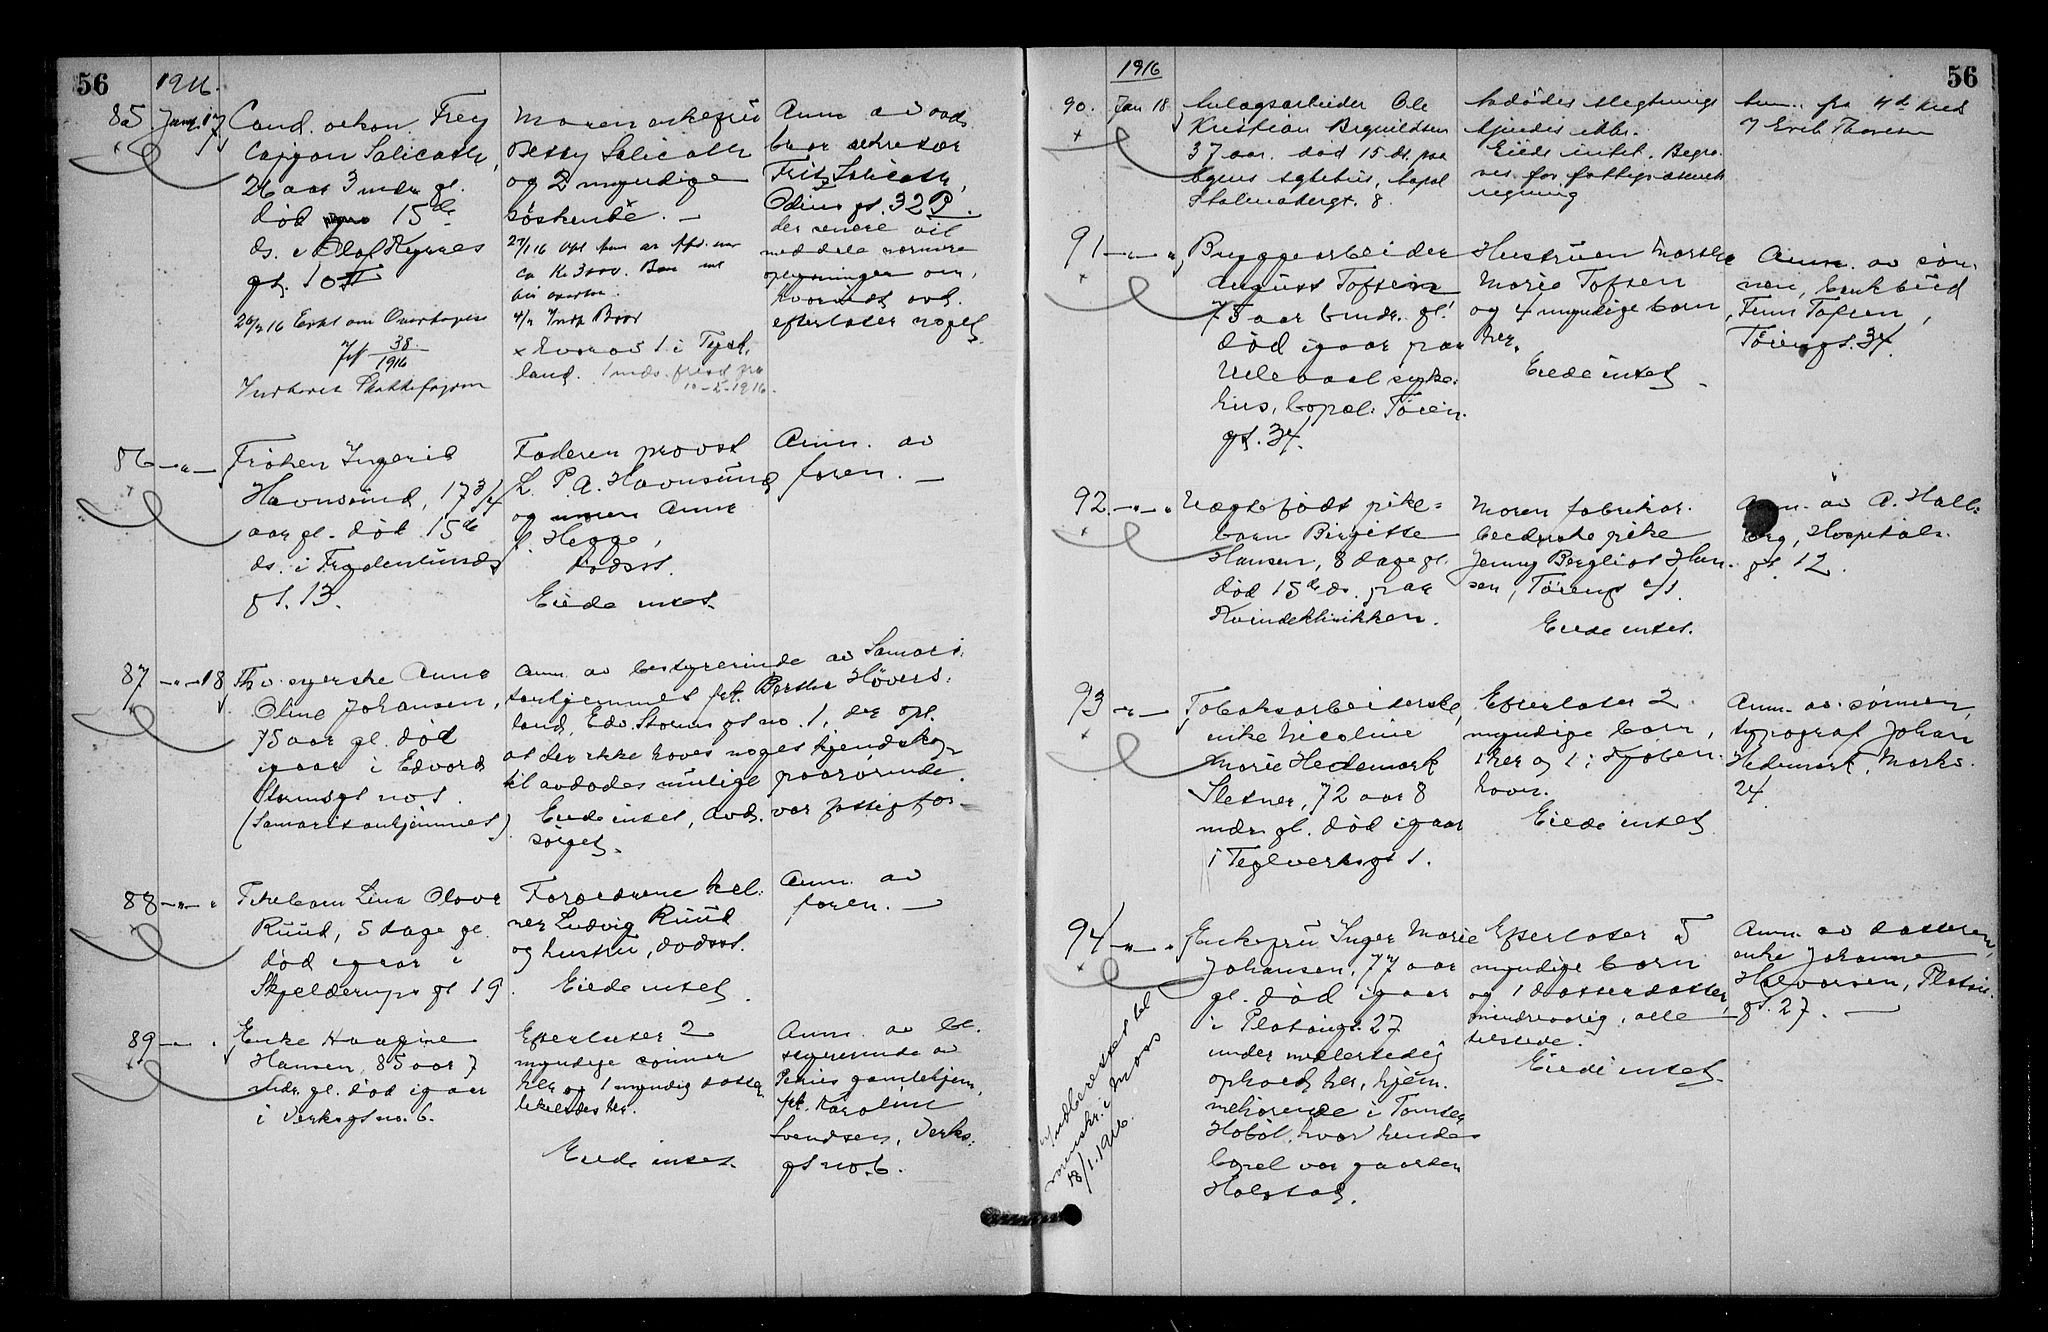 56
1916.
85. Jan. 17
Cand. oekon. Frey
Cajjan Salicath,
26 aar 3 mdr. gl.
død 15de
ds. i Olaf Kyrres
gt. 10 II
26/2 16 Erkl om Overtagelse
38
1916
Moren enkefrú
Betsy Salicath
og 2 myndige
søskende. —
27/1 16
ca Kr 3000.
4/2
x hvorav 1 i Tysk,
land. 1 mds. frist fra
10-2-1916.
Anm. av avds
bror sekretær
Fritz Salicath,
Odins gt. 32 P.
der senere vil
meddele nærmere
oplysninger om,
hvorvidt avd.
efterlater noget.
86 — " —
Frøken Ingerid
Havnsúnd, 17 3/4
aar gl. død 15de
ds. i Frydenlunds
gt. 13.
Faderen provst
L. P. A. Havnsúnd
og Anna
f. Hegge,
bosst.
Eiede intet.
Anm. av
faren. —
87 — " — 18
Fhv. syerske Anna
Oline Johansen,
75 aar gl. død
igaar i Edvard
Stormsgt no 1.
(Samaritanhjemmet)
Anm. av bestyrerinde av Samari-
tanhjemmet frk. Bertha Hövers-
land, Edv. Storms gt no. 1, der opl.
at der ikke haves noget kjendskap
til avdødes múlige paarørende.
Eiede intet, avd. var fattigfor-
sørget.
88 — " — "
Pikebarn Lina Olava
Rúúd, 5 dage gl.
død igaar i
Skjelderups gt 19.
Forældrene kel-
ner Ludvig Rúúd
og hústrú, bosst.
Eiede intet.
Anm. av
faren. —
89 — " — "
Enke Haagine
Hansen, 85 aar 7
mdr. gl. død igaar
i Verksgt no. 6.
Efterlater 2
myndige sönner
her og 1 myndig datter
likeledes her.
Eiede intet.
Anm. av be-
styrerinde av
gamlehjem,
frk. Karoline
Svendsen, Verks-
gt no. 6.
56
1916
90. Jan 18.
Anlægsarbeider Ole
Kristian
37 aar. død 15 ds. paa
byens sykehús, bopæl
Stolmakergt. 8.
Avdødes slegtninge
kjendes ikke.
Eiede intet. Begra-
ves for fattigvæsenets
regning
Anm. fra 4de kreds
v/ Erik Thoresen
91 — " — "
Bryggearbeider
August Tofsen
75 aar 6 mdr. gl.
död igaar paa
Ullevaal syke-
hús, bopæl: Töien-
gt. 34.
Hústrúen Marthe
Marie Tofsen
og 4 myndige barn
her.
Eiede intet.
Anm. av søn-
nen, kontorbúd
Finn Tofsen,
Töiengt. 34.
92. — " — "
Uegtefödt pike-
barn Birgitte
Hansen, 8 dage gl.
død 15de ds. paa
Kvindeklinikken.
Moren fabrikar-
beiderske pike
Jenny Bergliot Han-
sen, Töiengt 41.
Eiede intet.
Anm. av A. Hall-
berg, Hospitals-
gt. 12.
93 — " —
Tobaksarbeiderske,
enke Nicoline
Marie Hedemark
Sletner, 72 aar 8
mdr. gl. død igaar
i Teglverksgt 1.
Efterlater 2
myndige barn,
1 her og 1 i Kjøben-
havn.
Eiede intet
Anm. av sönnen,
typograf Johan
Hedemark, Mark-
24.
94 — " — "
Enkefrú Inger Marie
Johansen, 77 aar
gl. død igaar
i Platous gt. 27
under midlertidig
ophold her, hjem-
mehörende i Tomter
Hobøl, hvor hendes
bopel var gaarden
Holstad.
Efterlater 5
myndige barn
og 1 datterdatter,
mindreaarig, alle
tilstede.
Eiede intet.
Anm. av datteren,
enke Johanne
Halvorsen, Platous-
gt. 27. —
Indberettet til
sorenskr. i Moss
18/1. 1916.